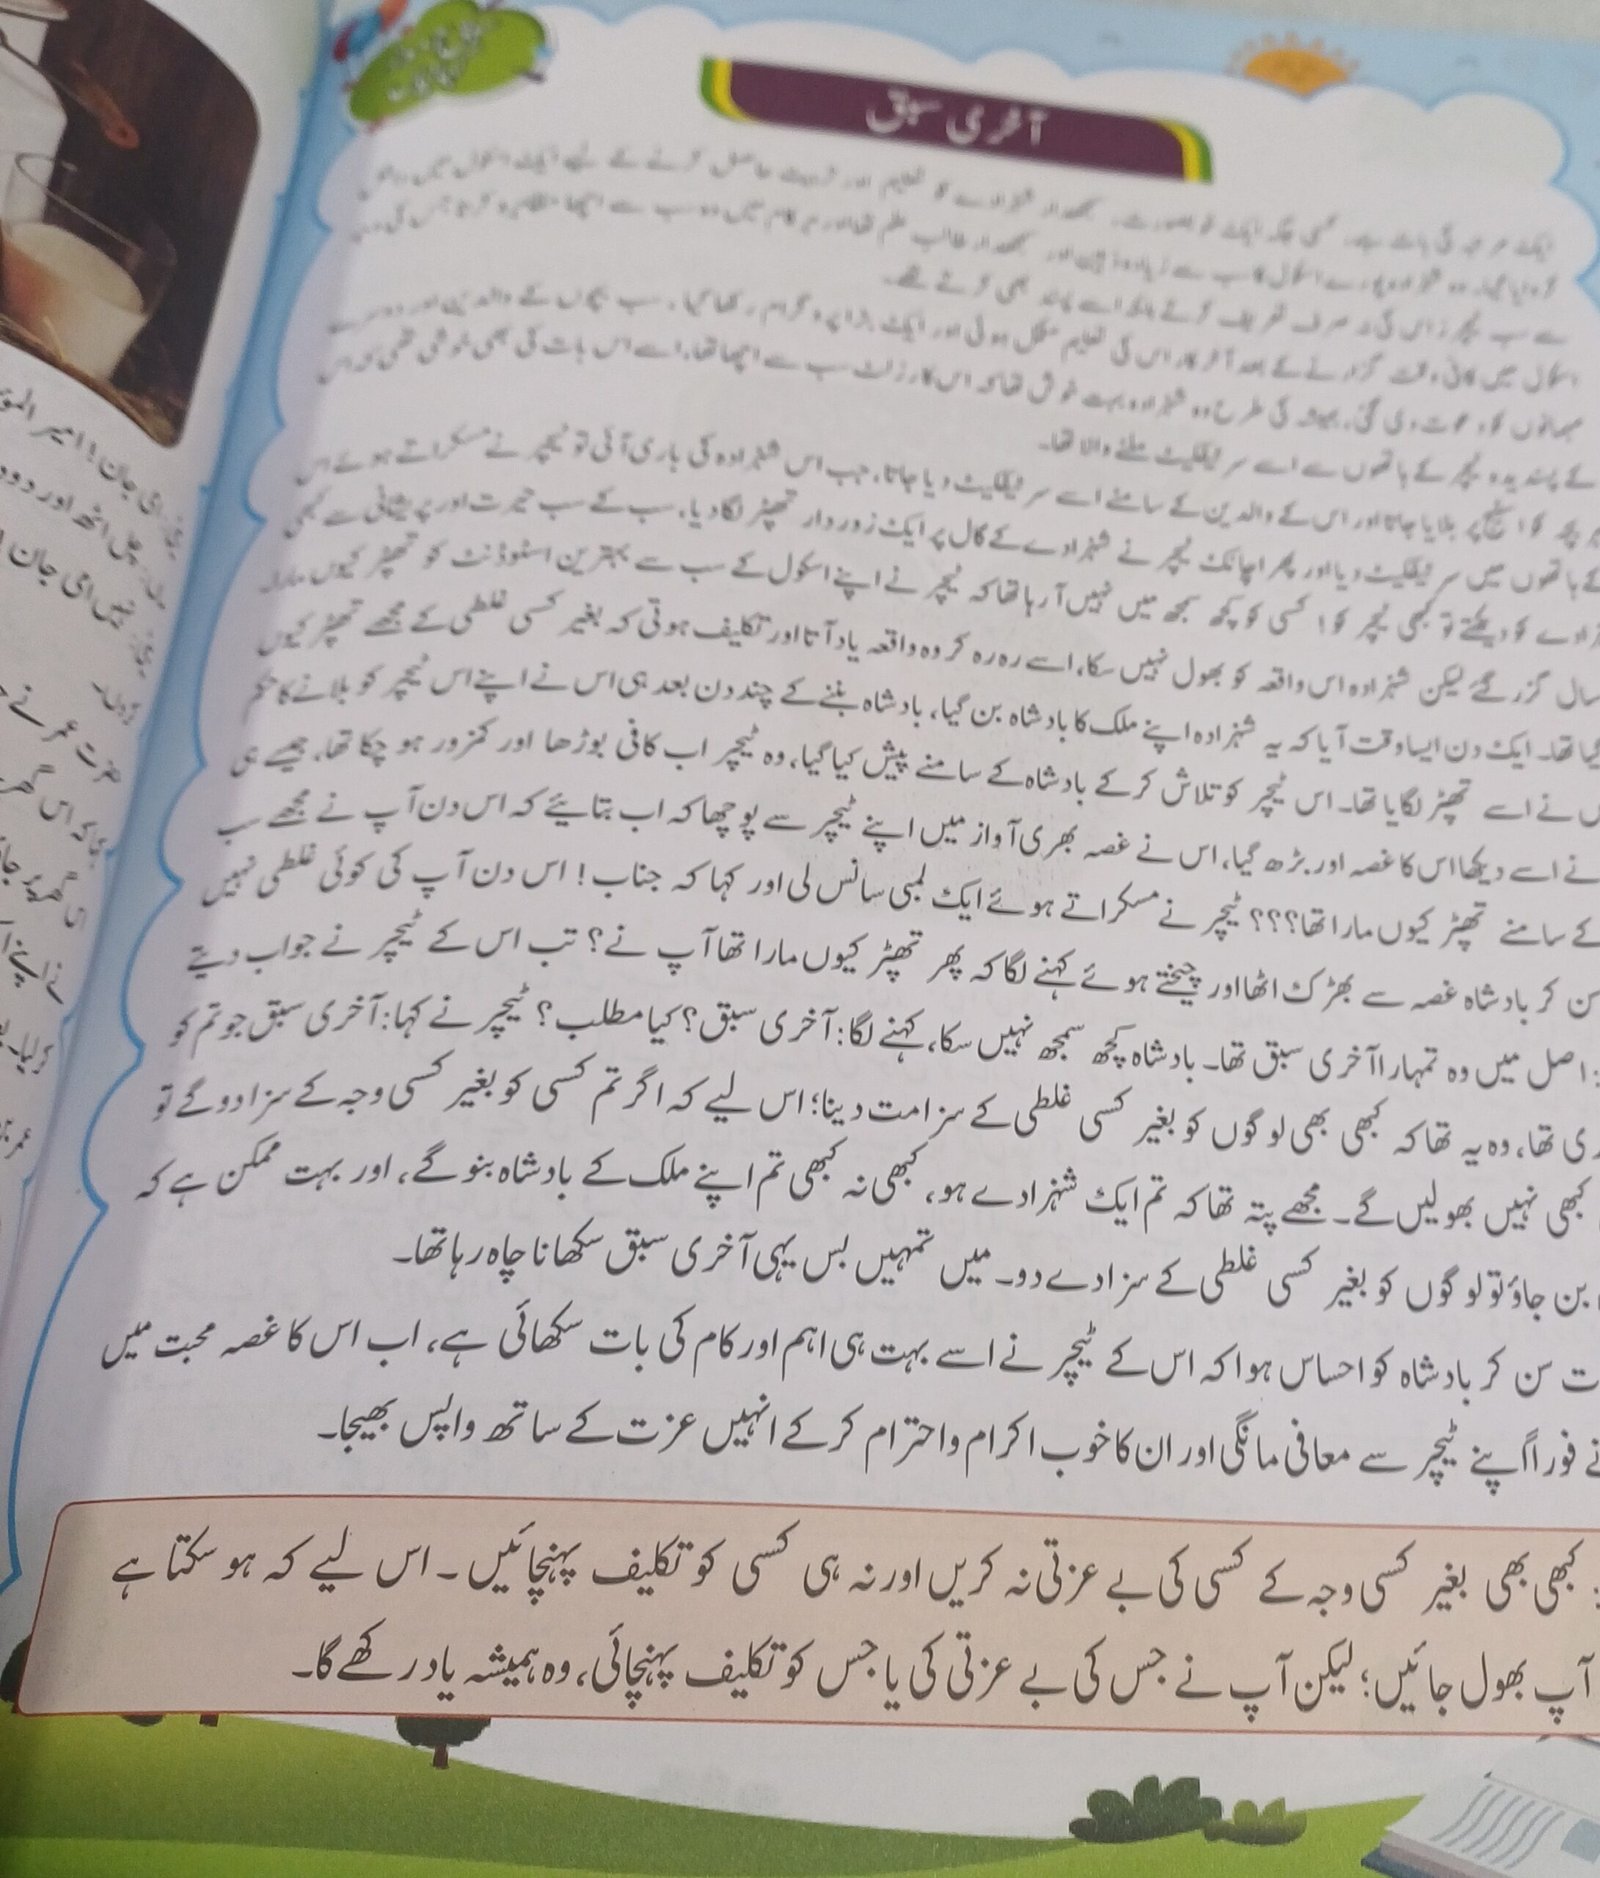 آخری سبق
ایک مرتبہ کی بات ہے۔ کسی جگہ ایک خوبصورت، سمجھدار شہزادے کو تعلیم اور تربیت حاصل کرنے کے لیے ایک اسکول میں
کروایا گیا، وہ شہزادہ پورے اسکول کا سب سے زیادہ ذہین اور سمجھدار طالب علم تھا اور ہر کام میں وہ سب سے اچھا مظاہرہ کرتا جس کی وجہ
سے سب ٹیچرز اس کی نہ صرف تعریف کرتے بلکہ اسے پسند بھی کرتے تھے۔
اسکول میں کافی وقت گزارنے کے بعد آخر کار اس کی تعلیم مکمل ہوئی اور ایک بڑا پروگرام رکھا گیا، سب بچوں کے والدین اور دوسرے
مہمانوں کو دعوت دی گئی، ہمیشہ کی طرح وہ شہزادہ بہت خوش تھا کہ اس کا رزلٹ سب سے اچھا تھا، اسے اس بات کی بھی خوشی تھی کہ اس
کے پسندیدہ ٹیچر کے ہاتھوں سے اسے سرٹیفکیٹ ملنے والا تھا۔
بچہ کو اسٹیج پر بلایا جاتا اور اس کے والدین کے سامنے اسے سرٹیفکیٹ دیا جاتا، جب اس شہزادہ کی باری آئی تو ٹیچر نے مسکراتے ہوئے اس
کے ہاتھوں میں سرٹیفکیٹ دیا اور پھر اچانک ٹیچر نے شہزادے کے گال پر ایک زور دار تھپڑ لگا دیا، سب کے سب حیرت اور پریشانی سے کبھی
کو دیکھتے تو کبھی ٹیچر کو! کسی کو کچھ سمجھ میں نہیں آرہا تھا کہ ٹیچر نے اپنے اسکول کے سب سے بہترین اسٹوڈنٹ کو تھپڑ کیوں مارا۔
سال گزر گئے لیکن شہزادہ اس واقعہ کو بھول نہیں سکا، اسے رہ رہ کر وہ واقعہ یاد آتا اور تکلیف ہوتی کہ بغیر کسی غلطی کے مجھے تھپڑ کیوں
گیا تھا۔ ایک دن ایسا وقت آیا کہ یہ شہزادہ اپنے ملک کا بادشاہ بن گیا، بادشاہ بننے کے چند دن بعد ہی اس نے اپنے اس ٹیچر کو بلانے کا حکم
نے اسے تھپڑ لگایا تھا۔ اس ٹیچر کو تلاش کر کے بادشاہ کے سامنے پیش کیا گیا، وہ ٹیچر اب کافی بوڑھا اور کمزور ہو چکا تھا، جیسے ہی
نے اسے دیکھا اس کا غصہ اور بڑھ گیا، اس نے غصہ بھری آواز میں اپنے ٹیچر سے پوچھا کہ اب بتائیے کہ اس دن آپ نے مجھے سب
کے سامنے تھپڑ کیوں مارا تھا؟؟؟ ٹیچر نے مسکراتے ہوئے ایک لمبی سانس لی اور کہا کہ جناب! اس دن آپ کی کوئی غلطی نہیں
کر بادشاہ غصہ سے بھڑک اٹھا اور چیختے ہوئے کہنے لگا کہ پھر تھپڑ کیوں مارا تھا آپ نے؟ تب اس کے ٹیچر نے جواب دیتے
: اصل میں وہ تمہارا آخری سبق تھا۔ بادشاہ کچھ سمجھ نہیں سکا، کہنے لگا: آخری سبق؟ کیا مطلب؟ ٹیچر نے کہا: آخری سبق جو تم کو
تھا، وہ یہ تھا کہ کبھی بھی لوگوں کو بغیر کسی غلطی کے سزا مت دینا؛ اس لیے کہ اگر تم کسی کو بغیر کسی وجہ کے سزا دو گے تو
کبھی نہیں بھولیں گے۔ مجھے پتہ تھا کہ تم ایک شہزادے ہو، کبھی نہ کبھی تم اپنے ملک کے بادشاہ بنو گے، اور بہت ممکن ہے کہ
بن جاؤ تو لوگوں کو بغیر کسی غلطی کے سزا دے دو۔ میں تمہیں بس یہی آخری سبق سکھانا چاہ رہا تھا۔
سن کر بادشاہ کو احساس ہوا کہ اس کے ٹیچر نے اسے بہت ہی اہم اور کام کی بات سکھائی ہے، اب اس کا غصہ محبت میں
فوراً اپنے ٹیچر سے معافی مانگی اور ان کا خوب اکرام و احترام کر کے انہیں عزت کے ساتھ واپس بھیجا۔
: کبھی بھی بغیر کسی وجہ کے کسی کی بے عزتی نہ کریں اور نہ ہی کسی کو تکلیف پہنچائیں۔ اس لیے کہ ہو سکتا ہے
آپ بھول جائیں؛ لیکن آپ نے جس کی بے عزتی کی یا جس کو تکلیف پہنچائی، وہ ہمیشہ یاد رکھے گا۔